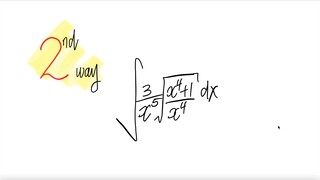 2nd way
∫ 3/x^5 √((x^4+1)/x^4) dx